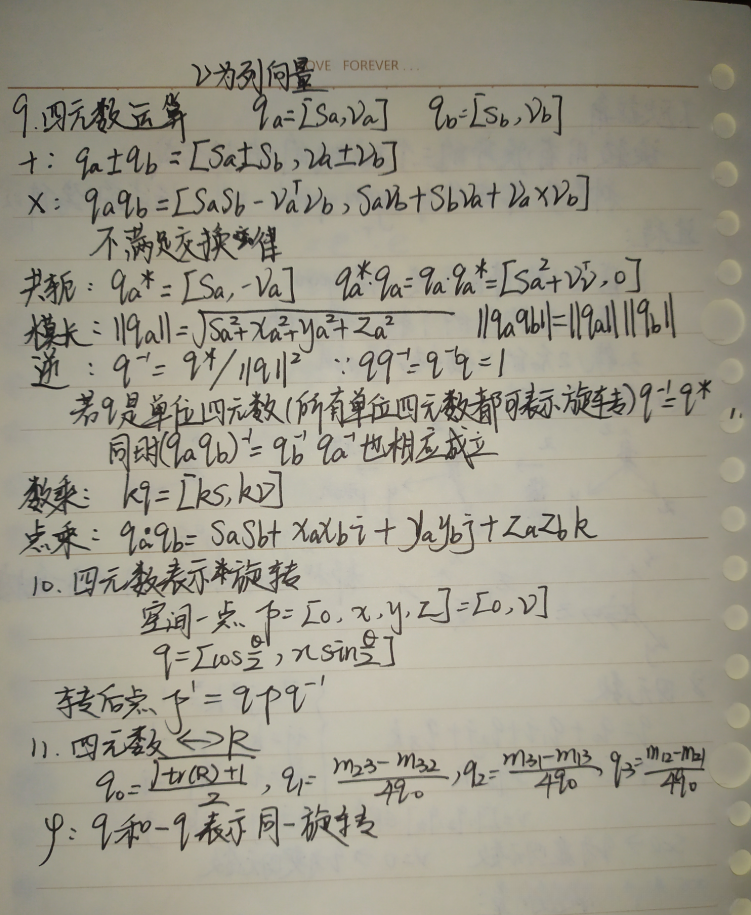 OVE FOREVER...
v为列向量
9.四元数运算 qa=[Sa,va] qb=[Sb,vb]
+: qa±qb=[Sa±Sb,va±vb]
×: qaqb=[SaSb-vaᵀvb,Savb+Sbva+va×vb]
不满足交换律
共轭: qa*=[Sa,-va] qa*·qa=qa·qa*=[Sa²+vᵀv,0]
模长: ||qa||=√(Sa²+xa²+ya²+za²) ||qaqb||=||qa|| ||qb||
逆: q⁻¹=q*/||q||² ∵qq⁻¹=q⁻¹q=1
若q是单位四元数(所有单位四元数都可表示旋转)q⁻¹=q*
同时(qaqb)⁻¹=qb⁻¹qa⁻¹也相应成立
数乘: kq=[ks,kv]
点乘: qa·qb=SaSb+xaxbi+yaybj+zazbk
10.四元数表示旋转
空间一点 p=[0,x,y,z]=[0,v]
q=[cosθ/2,nsinθ/2]
转后点 p'=qpq⁻¹
11.四元数↔R
q₀=√(tr(R)+1)/2,q₁=(m₂₃-m₃₂)/4q₀,q₂=(m₃₁-m₁₃)/4q₀,q₃=(m₁₂-m₂₁)/4q₀
q和-q表示同一旋转